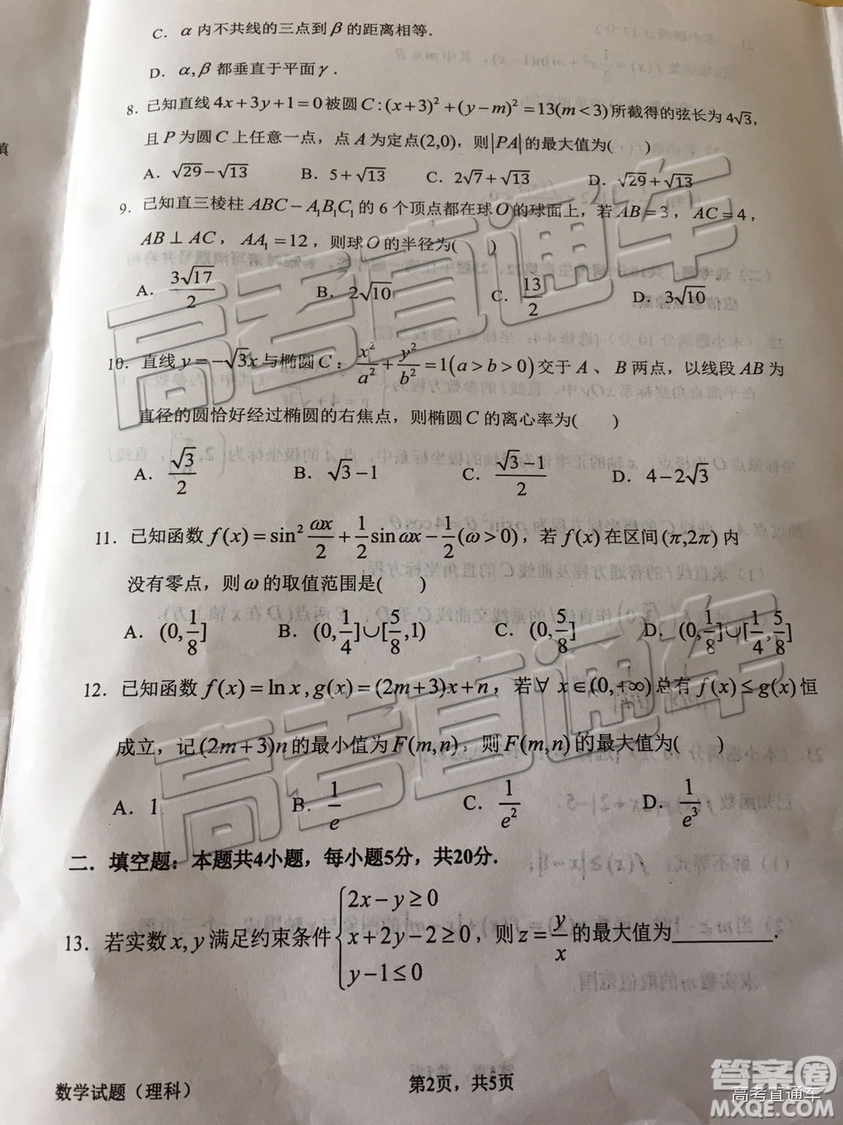 C. α 内不共线的三点到 β 的距离相等.
D. α,β 都垂直于平面 γ.
8. 已知直线 4x+3y+1=0 被圆 C:(x+3)²+(y−m)²=13(m<3) 所截得的弦长为 4√3,
且 P 为圆 C 上任意一点，点 A 为定点(2,0)，则|PA|的最大值为( )
A. √29−√13 B. 5+√13 C. 2√7+√13 D. √29+√13
9. 已知直三棱柱 ABC−A₁B₁C₁ 的 6 个顶点都在球 O 的球面上，若 AB=3，AC=4，
AB⊥AC，AA₁=12，则球 O 的半径为( )
A. 3√17/2 B. 2√10 C. 13/2 D. 3√10
10. 直线 y=−√3x 与椭圆 C：x²/a²+y²/b²=1(a>b>0) 交于 A、B 两点，以线段 AB 为
直径的圆恰好经过椭圆的右焦点，则椭圆 C 的离心率为( )
A. √3/2 B. √3−1 C. (√3−1)/2 D. 4−2√3
11. 已知函数 f(x)=sin² ωx/2 + 1/2 sin ωx − 1/2 (ω>0)，若 f(x) 在区间 (π,2π) 内
没有零点，则 ω 的取值范围是( )
A. (0,1/8] B. (0,1/4]∪[5/8,1) C. (0,5/8] D. (0,1/8]∪[1/4,5/8]
12. 已知函数 f(x)=ln x, g(x)=(2m+3)x+n，若∀ x∈(0,+∞) 总有 f(x)≤g(x) 恒
成立，记(2m+3)n 的最小值为 F(m,n)，则 F(m,n) 的最大值为( )
A. 1 B. 1/e C. 1/e² D. 1/e³
二．填空题：本题共4小题，每小题5分，共20分.
13. 若实数 x,y 满足约束条件 {2x−y≥0 x+2y−2≥0 y−1≤0，则 z=y/x 的最大值为________.
数学试题（理科） 第2页，共5页
高考直通车
高考直通车
答案圈
高考直通车
MXQE.COM